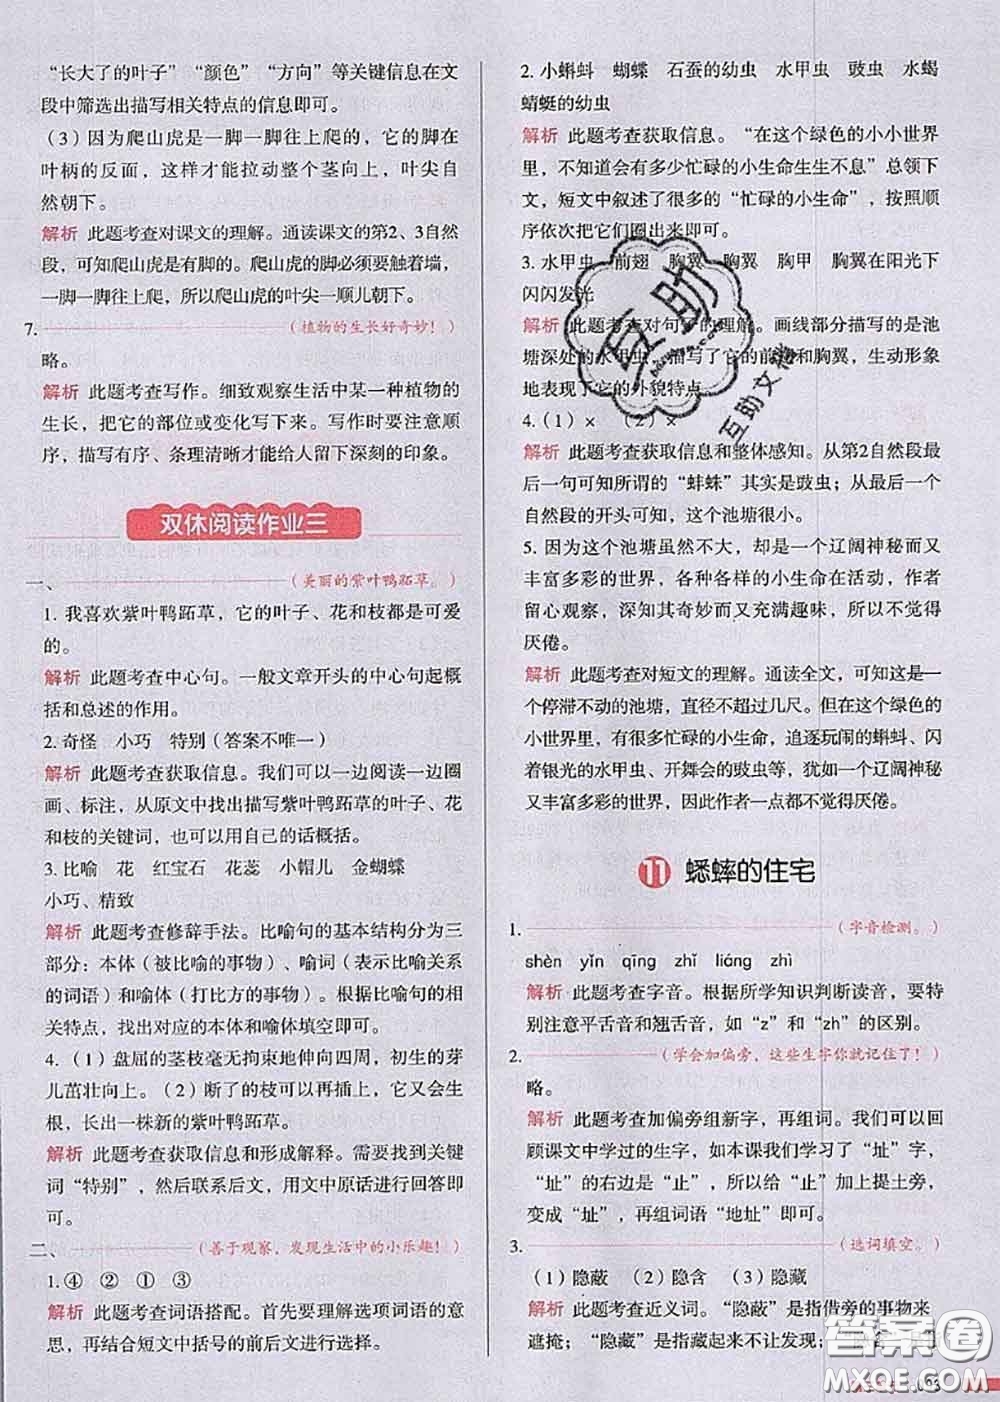 “长大了的叶子”“颜色”“方向”等关键信息在文
段中筛选出描写相关特点的信息即可。
（3）因为爬山虎是一脚一脚往上爬的，它的脚在
叶柄的反面，这样才能拉动整个茎向上，叶尖自
然朝下。
解析 此题考查对课文的理解。通读课文的第2、3自然
段，可知爬山虎是有脚的。爬山虎的脚必须要触着墙，
一脚一脚往上爬，所以爬山虎的叶尖一顺儿朝下。
7.（植物的生长好奇妙！）
略。
解析 此题考查写作。细致观察生活中某一种植物的
生长，把它的部位或变化写下来。写作时要注意顺
序，描写有序、条理清晰才能给人留下深刻的印象。
双休阅读作业三
一、（美丽的紫叶鸭跖草。）
1. 我喜欢紫叶鸭跖草，它的叶子、花和枝都是可爱
的。
解析 此题考查中心句。一般文章开头的中心句起概
括和总述的作用。
2. 奇怪 小巧 特别（答案不唯一）
解析 此题考查获取信息。我们可以一边阅读一边圈
画、标注，从原文中找出描写紫叶鸭跖草的叶子、花
和枝的关键词，也可以用自己的话概括。
3. 比喻 花 红宝石 花蕊 小帽儿 金蝴蝶
小巧、精致
解析 此题考查修辞手法。比喻句的基本结构分为三
部分：本体（被比喻的事物）、喻词（表示比喻关系
的词语）和喻体（打比方的事物）。根据比喻句的相
关特点，找出对应的本体和喻体填空即可。
4.（1）盘屈的茎枝毫无拘束地伸向四周，初生的芽
儿茁壮向上。（2）断了的枝可以再插上，它又会生
根，长出一株新的紫叶鸭跖草。
解析 此题考查获取信息和形成解释。需要找到关键
词“特别”，然后联系后文，用文中原话进行回答即
可。
二、（善于观察，发现生活中的小乐趣！）
1.④ ② ① ③
解析 此题考查词语搭配。首先要理解选项词语的意
思，再结合短文中括号的前后文进行选择。
2. 小蝌蚪 蝴蝶 石蚕的幼虫 水甲虫 豉虫 水蝎
蜻蜓的幼虫
解析 此题考查获取信息。“在这个绿色的小小世界
里，不知道会有多少忙碌的小生命生生不息”总领下
文，短文中叙述了很多的“忙碌的小生命”，按照顺
序依次把它们圈出来即可。
3. 水甲虫 前翅 胸翼 胸翼 胸甲 胸翼在阳光下
闪闪发光
解析 此题考查对句子的理解。画线部分描写的是池
塘深处的水甲虫，描写了它的前翅和胸翼，生动形象
地表现了它的外貌特点
4.（1）× （2）×
解析 此题考查获取信息和整体感知。从第2自然段最
后一句可知所谓的“蚌蛛”就是豉虫；从最后一个
自然段的开头可知，这个池塘很小。
5. 因为这个池塘虽然不大，却是一个辽阔神秘而又
丰富多彩的世界，各种各样的小生命在活动，作者
留心观察，深知其奇妙而又充满趣味，所以不觉得
厌倦。
解析 此题考查对短文的理解。通读全文，可知这是
一个停滞不动的池塘，直径不超过几尺。但在这个绿色的
世界里，有很多忙碌的小生命，追逐玩闹的蝌蚪、闪
着银光的水甲虫、开舞会的豉虫等，犹如一个辽阔神秘
又丰富多彩的世界，因此作者一点都不觉得厌倦。
11 蟋蟀的住宅
1.（字音检测。）
shèn yǐn qīng zhǐ liáng zhì
解析 此题考查字音。根据所学知识判断读音，要特
别注意平舌音和翘舌音，如“z”和“zh”的区别。
2.（学会加偏旁，这些生字你就记住了！）
略。
解析 此题考查加偏旁组新字，再组词。我们可以回
顾课文中学过的生字，如本课我们学习了“址”字，
“址”的右边是“止”，所以给“止”加提土旁，
变成“址”，再组词语“地址”即可。
3.（选词填空。）
（1）隐蔽 （2）隐含 （3）隐藏
解析 此题考查近义词。“隐蔽”是指借旁的事物来
遮掩；“隐藏”是指藏起来不让发现；
互助
互助文档
答案圈
MXQE.COM